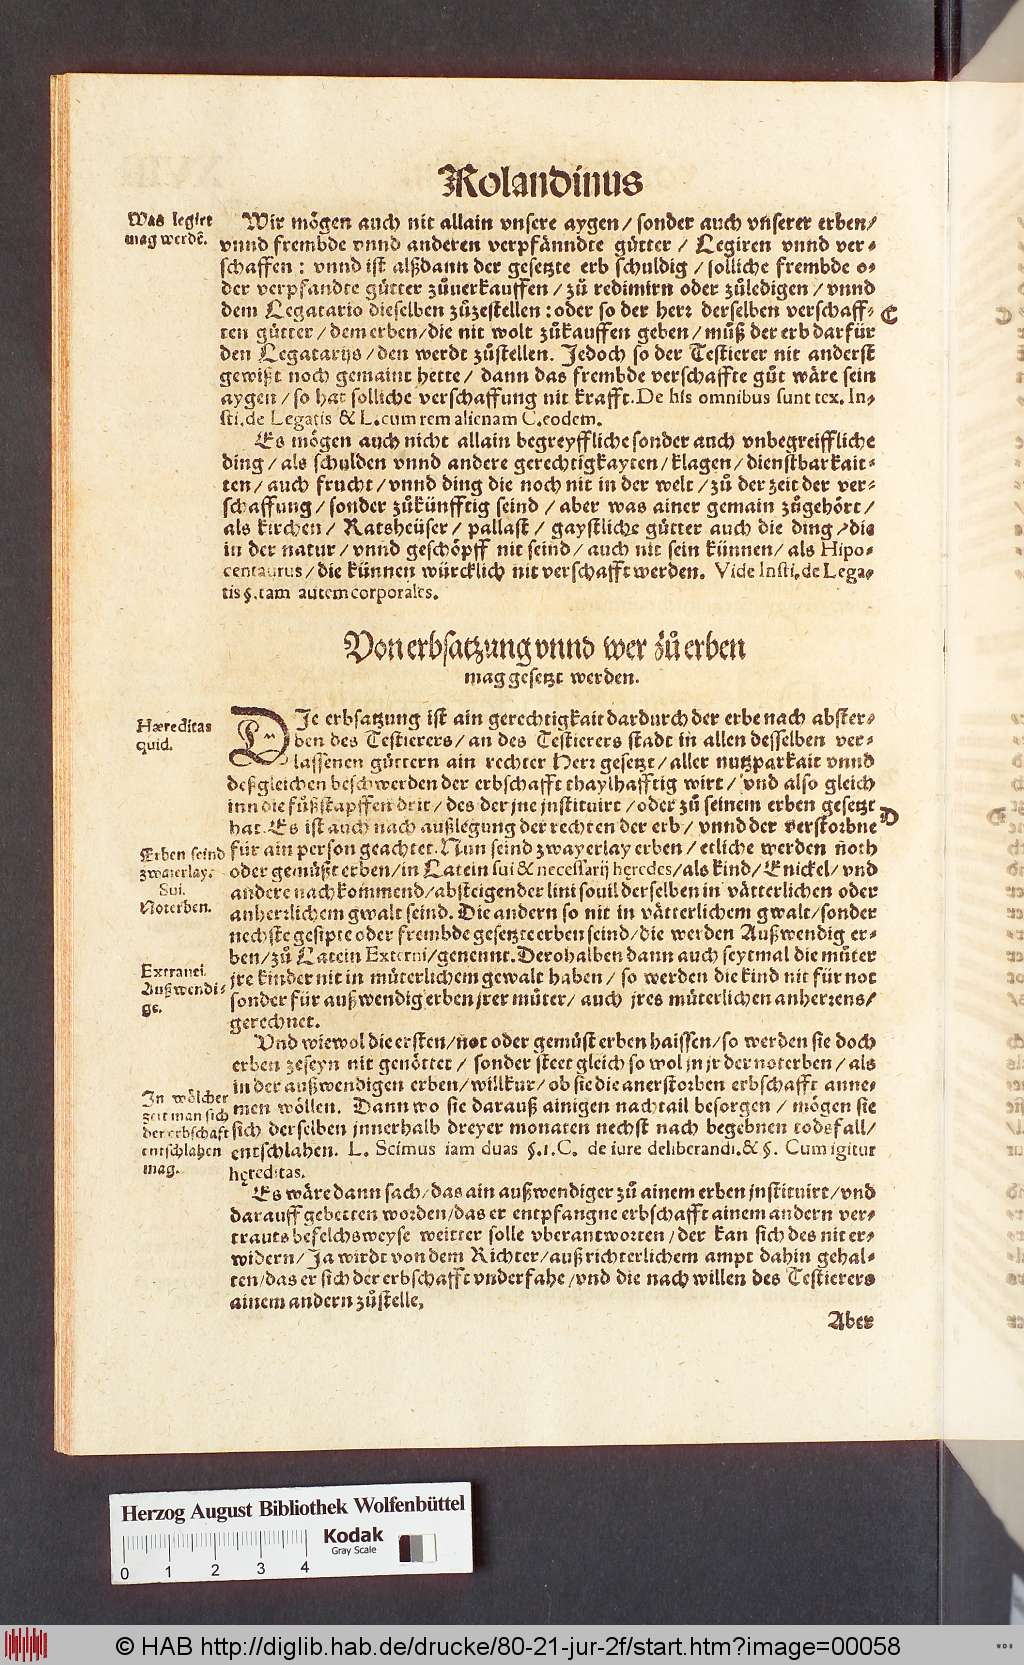 Rolandinus
Was legirt
mag werdē.
Wir mögen auch nit allain vnsere aygen / sonder auch vnserer erben /
vnnd frembde vnnd anderen verpfänndte gütter / Legiren vnnd ver⸗
schaffen : vnnd ist alßdann der gesetzte erb schuldig / solliche frembde o⸗
der verpfandte gütter zůuerkauffen / zů redimirn oder zůledigen / vnnd
dem Legatario dieselben zůzestellen : oder so der herr derselben verschaff⸗
C
ten gütter / dem erben / die nit wolt zůkauffen geben / můß der erb darfür
den Legatarijs / den werdt zůstellen. Jedoch so der Testierer nit anderst
gewißt noch gemaint hette / dann das frembde verschaffte gůt wäre sein
aygen / so hat solliche verschaffung nit krafft. De his omnibus sunt tex. In⸗
sti. de Legatis & L. cum rem alienam C. eodem.
Es mögen auch nicht allain begreyffliche sonder auch vnbegreiffliche
ding / als schulden vnnd andere gerechtigkayten / klagen / dienstbarkait⸗
ten / auch frucht / vnnd ding die noch nit in der welt / zů der zeit der ver⸗
schaffung / sonder zůkünfftig seind / aber was ainer gemain zůgehört /
als kirchen / Ratsheüser / pallast / gaystliche gütter auch die ding / die
in der natur / vnnd geschöpff nit seind / auch nit sein künnen / als Hipo⸗
centaurus / die künnen würcklich nit verschafft werden. Vide Insti. de Lega⸗
tis §. tam autem corporales.
Von erbsatzung vnnd wer zů erben
mag gesetzt werden.
Hæreditas
quid.
DIe erbsatzung ist ain gerechtigkait dardurch der erbe nach abster⸗
ben des Testierers / an des Testierers stadt in allen desselben ver⸗
lassenen güttern ain rechter Herr gesetzt / aller nutzparkait vnnd
deßgleichen beschwerden der erbschafft thaylhafftig wirt / vnd also gleich
inn die fůßstapffen drit / des der jne jnstituirt / oder zů seinem erben gesetzt
D
hat. Es ist auch nach außlegung der rechten der erb / vnnd der verstorbne
Erben seind
zwaierlay.
Sui.
Noterben.
für ain person geachtet. Nun seind zwayerlay erben / etliche werden noth
oder gemüßt erben / in Latein sui & necessarij heredes / als kind / Enickel / vnd
andere nachkommend / absteigender lini souil derselben in vätterlichen oder
anherrlichem gwalt seind. Die andern so nit in vätterlichem gwalt / sonder
nechste gesipte oder frembde gesetzte erben seind / die werden Außwendig er⸗
Extranei
Außwendi⸗
ge.
ben / zů Latein Externi / genennt. Derohalben dann auch seytmal die můter
jre kinder nit in můterlichem gewalt haben / so werden die kind nit für not
sonder für außwendig erben jrer můter / auch jres můterlichen anherrens /
gerechnet.
Vnd wiewol die ersten / not oder gemüst erben haissen / so werden sie doch
erben zeseyn nit genöttet / sonder steet gleich so wol jn jr der noterben / als
in der außwendigen erben / willkur / ob sie die anerstorben erbschafft anne⸗
In wölcher
zeit man sich
der erbschaft
entschlahen
mag.
men wöllen. Dann wo sie darauß ainigen nachtail besorgen / mögen sie
sich derselben jnnerhalb dreyer monaten nechst nach begebnen todsfall /
entschlahen. L. Scimus iam duas §. 1. C. de iure deliberandi. & §. Cum igitur
hereditas.
Es wäre dann sach / das ain außwendiger zů ainem erben jnstituirt / vnd
darauff gebetten worden / das er entpfangne erbschafft ainem andern ver⸗
trauts befelchsweyse weitter solle vberantworten / der kan sich des nit er⸗
widern / Ja wirdt von dem Richter / auß richterlichem ampt dahin gehal⸗
ten / das er sich der erbschafft vnderfahe / vnd die nach willen des Testierers
ainem andern zůstelle,
Aber
Herzog August Bibliothek Wolfenbüttel
Kodak
Gray Scale
0 1 2 3 4
© HAB http://diglib.hab.de/drucke/80-21-jur-2f/start.htm?image=00058